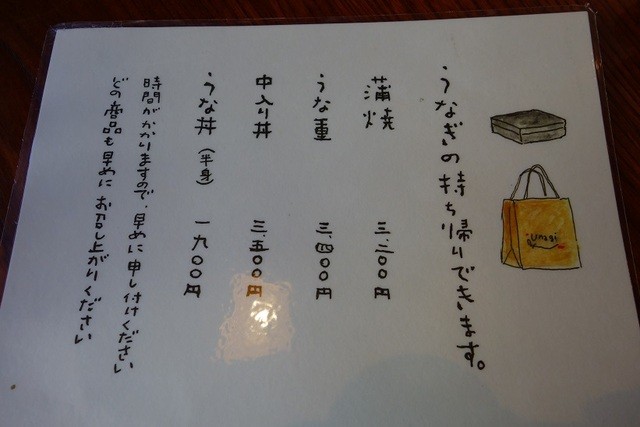 うなぎの持ち帰りできます。
蒲焼 三、三〇〇円
うな重 三、四〇〇円
中入り丼 三、五〇〇円
うな丼（半身） 一九〇〇円
時間がかかりますので、早めに申し付けください
どの商品も早めにお召し上がりください
unagi